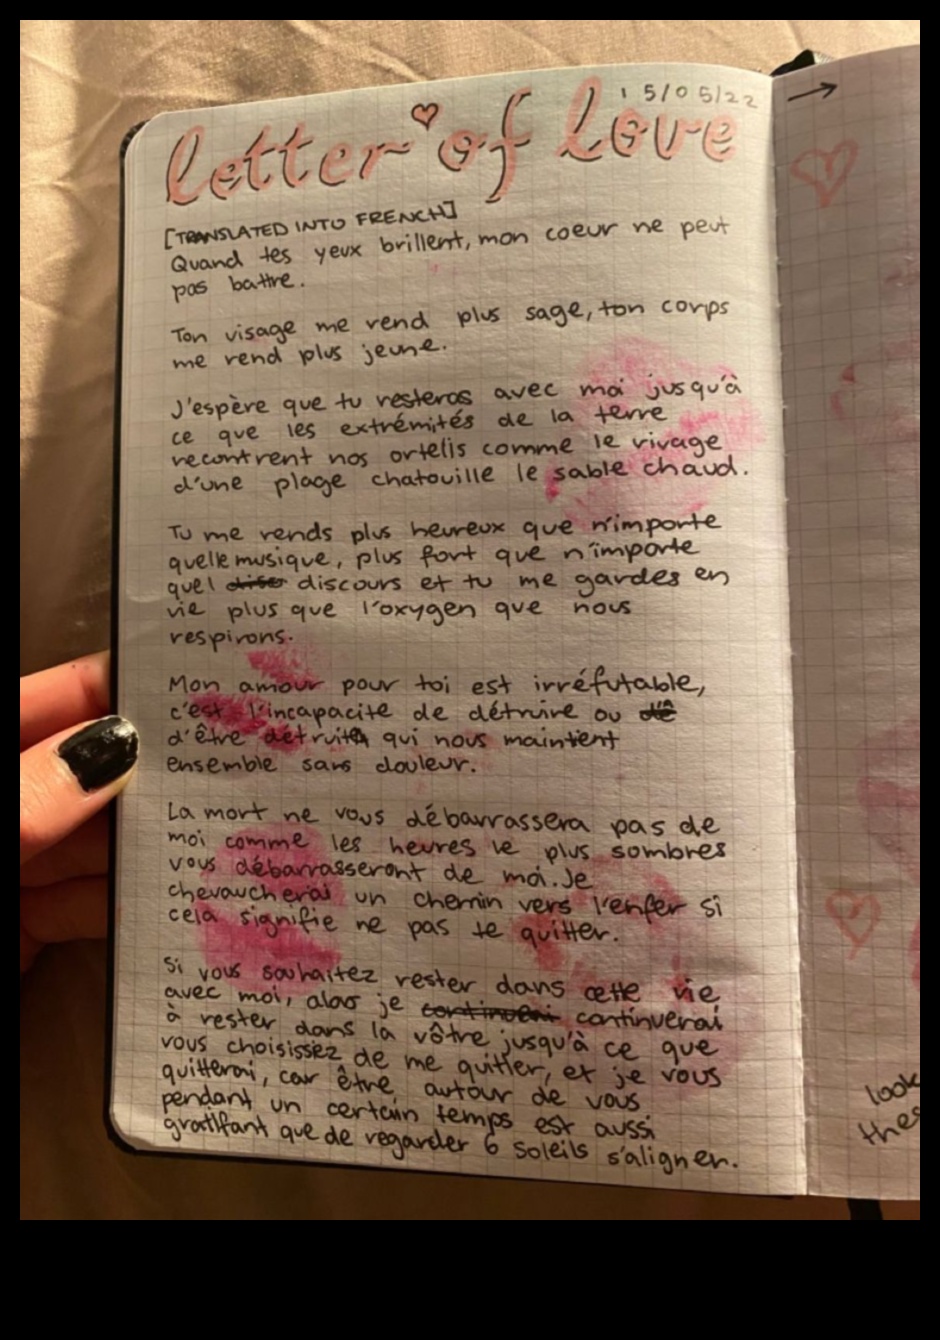 15/05/22
letter of love
[TRANSLATED INTO FRENCH]
Quand tes yeux brillent, mon coeur ne peut
pas battre.
Ton visage me rend plus sage, ton corps
me rend plus jeune.
J'espère que tu resteras avec moi jusqu'à
ce que les extrémités de la terre
recontrent nos ortelis comme le rivage
d'une plage chatouille le sable chaud.
Tu me rends plus heureux que n'importe
quelle musique, plus fort que n'importe
quel discours et tu me gardes en
vie plus que l'oxygen que nous
respirons.
Mon amour pour toi est irréfutable,
c'est l'incapacite de détruire ou
d'être détruit qui nous maintient
ensemble sans douleur.
La mort ne vous débarrassera pas de
moi comme les heures le plus sombres
vous débarrasseront de moi. Je
chevaucherai un chemin vers l'enfer si
cela signifie ne pas te quitter.
Si vous souhaitez rester dans cette vie
avec moi, je continuerai
à rester dans la vôtre jusqu'à ce que
vous choisissez de me quitter, et je vous
quitterai, car être autour de vous
pendant un certain temps est aussi
gratifant que de regarder 6 soleils s'aligner.
look